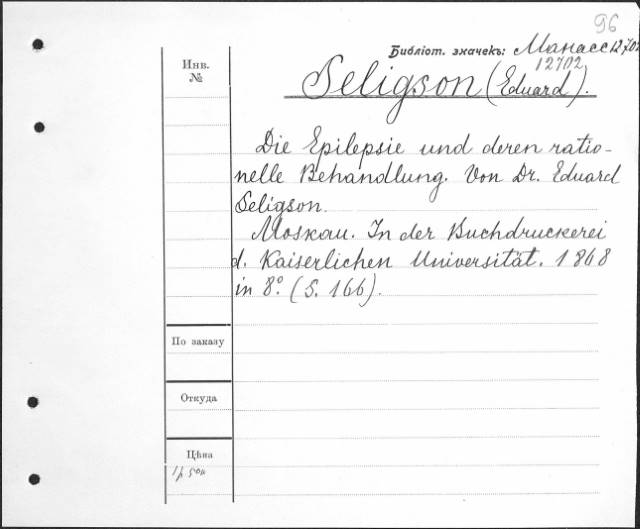 96
Библіот. значекъ: Манасс 12702
12702
Инв.
№
Seligson (Eduard).
Die Epilepsie und deren ratio-
nelle Behandlung. Von Dr. Eduard
Seligson.
Moskau. In der Buchdruckerei
d. Kaiserlichen Universität. 1868
in 8º. (S. 166).
По заказу
Откуда
Цѣна
1р 50к